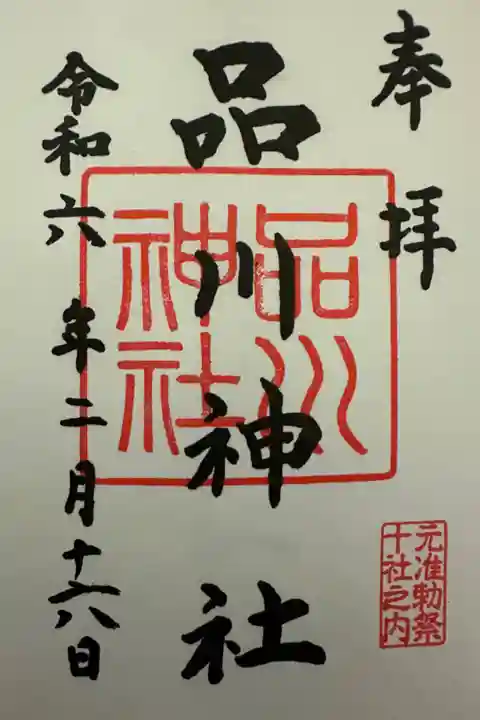 奉拝
品川神社
品川
神社
令和六年二月十八日
元准勅祭
十社之内